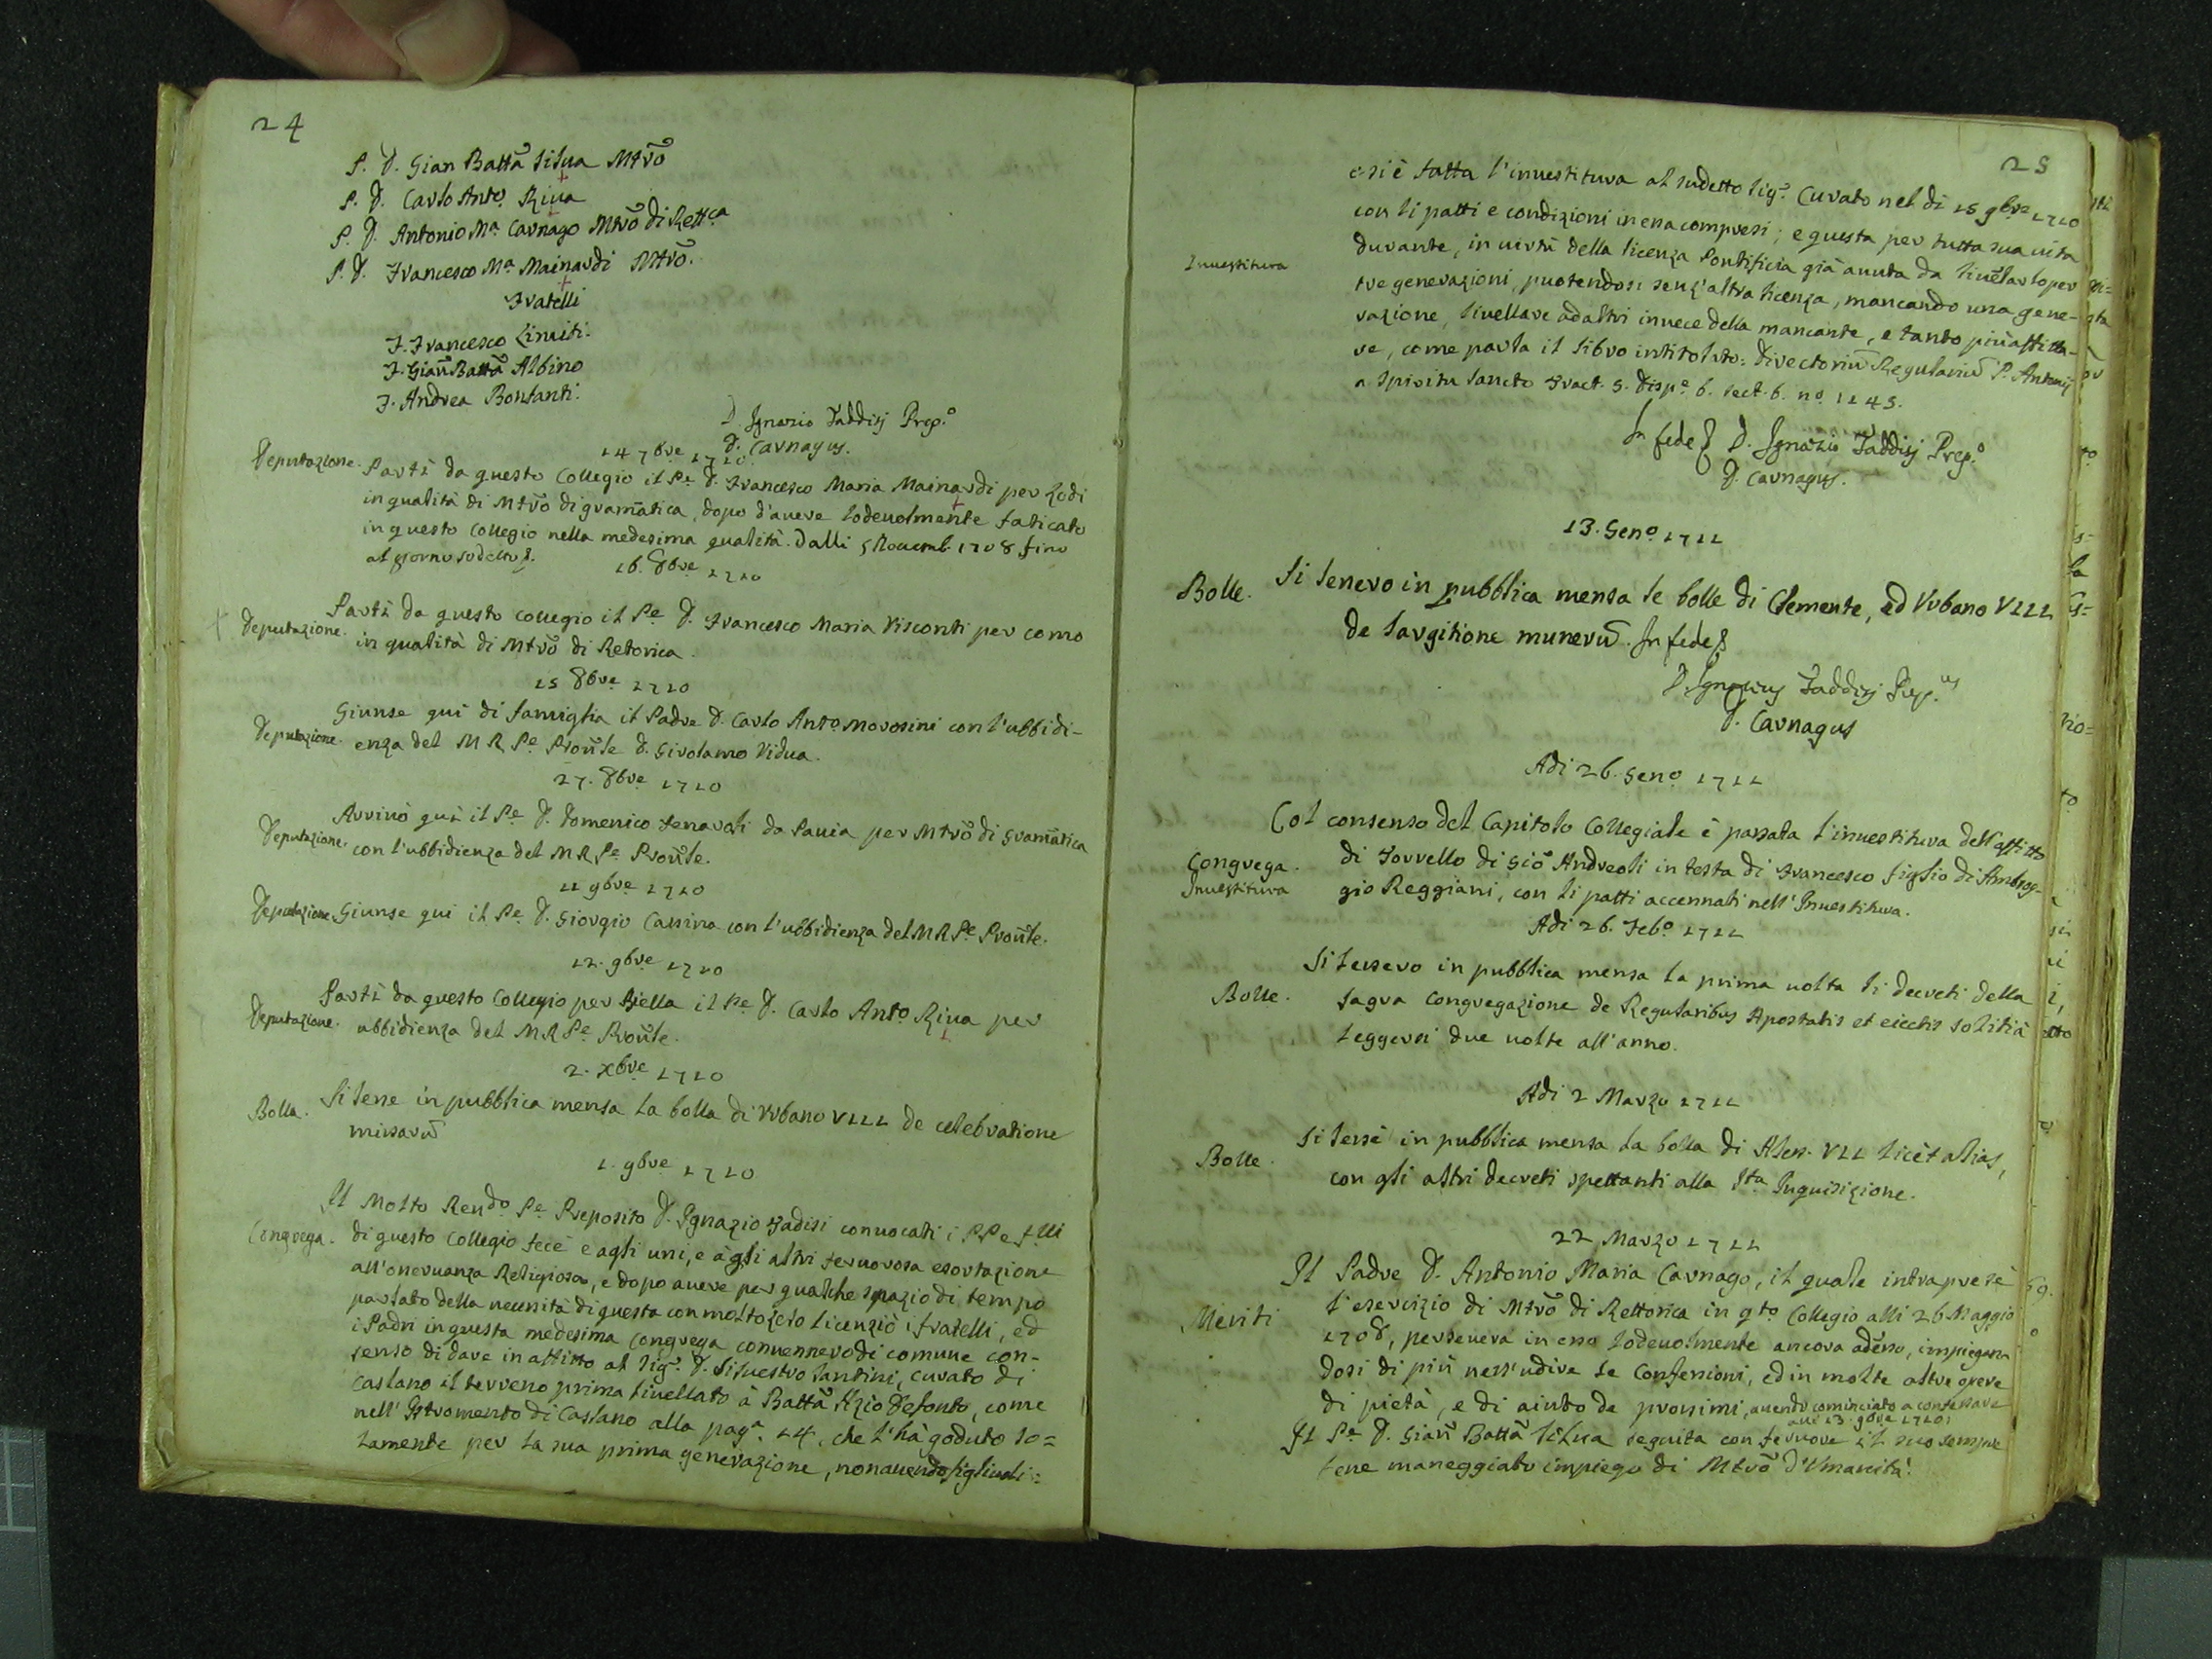 24
P. D. Gian Battā Silua Mtrō
P. D. Carlo Antº. Riua
P. D. Antonio Mª. Carnago Mtrō di Rettca
P. D. Francesco Mª Mainardi Mtrō.
Fratelli
F. Francesco Limiti.
F. Giañ Battā Albino
F. Andrea Bonfanti.
D. Ignazio Taddisj Prep.º
D. Carnagus.
14 7bre 1710
Deputazione. Partì da questo Collegio il Pe D. Francesco Maria Mainardi per Lodi
in qualità di Mtrō di gramatica, dopo d'auere lodeuolmente faticato
in questo Collegio nella medesima qualità. Dalli 5 Nouemb. 1708 fino
al giorno sodetto
16. 8bre 1710
Deputazione. Partì da questo collegio il Pe D. Francesco Maria Visconti per como
in qualità di Mtrō di Retorica.
25 8bre 1710
Giunse quì di famiglia il Padre D. Carlo Antº Morosini con l'ubbidi-
Deputazione. enza del M R Pe Proũle D. Girolamo Vidua.
27. 8bre 1710
Arriuò quì il Pe D. Domenico Tenarati da Pauia per Mtrō di Gramatica
Deputazione. con l'ubbidienza del M R Pe Proũle.
11 9bre 1710
Deputazione Giunse quì il Pe D. Giorgio Cassina con l'ubbidienza del M R Pe Proũle.
12. 9bre 1710
Partì da questo Collegio per Biella il Pe D. Carlo Antº Riua per
Deputazione. ubbidienza del M R Pe Proũle.
2. Xbre 1710
Bolla. Si lesse in pubblica mensa la bolla di Vrbano VIII de celebratione
missarū
1. 9bre 1710
Il Molto Rendo Pe Preposito D. Ignazio Tadisi conuocati i PP e flli
Congrega. di questo Collegio fece e agli uni, e àgli altri feruorosa esortazione
all'osseruanza Religiosa, e dopo auere per qualche spazio di tempo
parlato della necessità di questa con molto zelo licenziò i fratelli, ed
i Padri in questa medesima congrega conuennero di comune con-
senso di dare in affitto al Sigr. D. Siluestro Santini, curato di
Caslano il terreno prima liuellato à Battā Azio Defonto, come
nell'Istromento di Caslano alla pagª. 14, che l'hà goduto so=
lamente per la sua prima generazione, non auendo figliuoli:
25
e si è fatta l'inuestitura al sudetto Sigr. Curato nel dì 15 9bre 1710
con li patti e condizioni in essa compresi; e questa per tutta sua uita
Inuestitura durante, in uirtù della licenza Pontificia già auuta da liuellarlo per
tre generazioni, puotendosi senz'altra licenza, mancando una gene-
razione, liuellare ad altri inuece della mancante, e tanto più affitta-
re, come parla il libro intitolato: Directoriū Regulariū P. Antonij
a Spiritu Sancto Tract. 5. Dispe. 6. sect. 6. nº. 1145.
In fede D. Ignazio Taddisj Prep.º
D. Carnagus.
13. Genº 1711
Bolle. Si lessero in pubblica mensa le bolle di Clemente, ed Vrbano VIII
de largitione munerū. In fede
D. Ignatius Taddisj Prep.us
D. Carnagus
Adi 26. Genº 1711
Col consenso del Capitolo Collegiale è passata l'inuestitura dell'affitto
Congrega. di Torrello di Giō Andreoli in testa di Francesco figlio di Ambrog-
Inuestitura gio Reggiani, con li patti accennati nell'Inuestitura.
Adi 26. Febº 1711
Si lessero in pubblica mensa la prima uolta li decreti della
Bolle. sagra congregazione de Regularibus Apostatis et eiectis soliti à
leggersi due uolte all'anno.
Adi 2 Marzo 1711
Si lesse in pubblica mensa la bolla di Aless. VII licèt alias,
Bolle. con gli altri decreti spettanti alla Sta Inquisizione.
22 Marzo 1711
Il Padre D. Antonio Maria Carnago, il quale intraprese
Meriti l'esercizio di Mtrō di Rettorica in qto Collegio alli 26 Maggio
1708, perseuera in esso lodeuolmente ancora adesso, impiegan
dosi di più nell'udire le Confessioni, ed in molte altre opere
di pietà, e di aiuto de prossimi, auendo cominciato a confessare
alli 13. 9bre 1710;
Il Pe D. Giañ Battā Silua seguita con feruore il suo sempre
bene maneggiato impiego di Mtrō d'Vmanità.